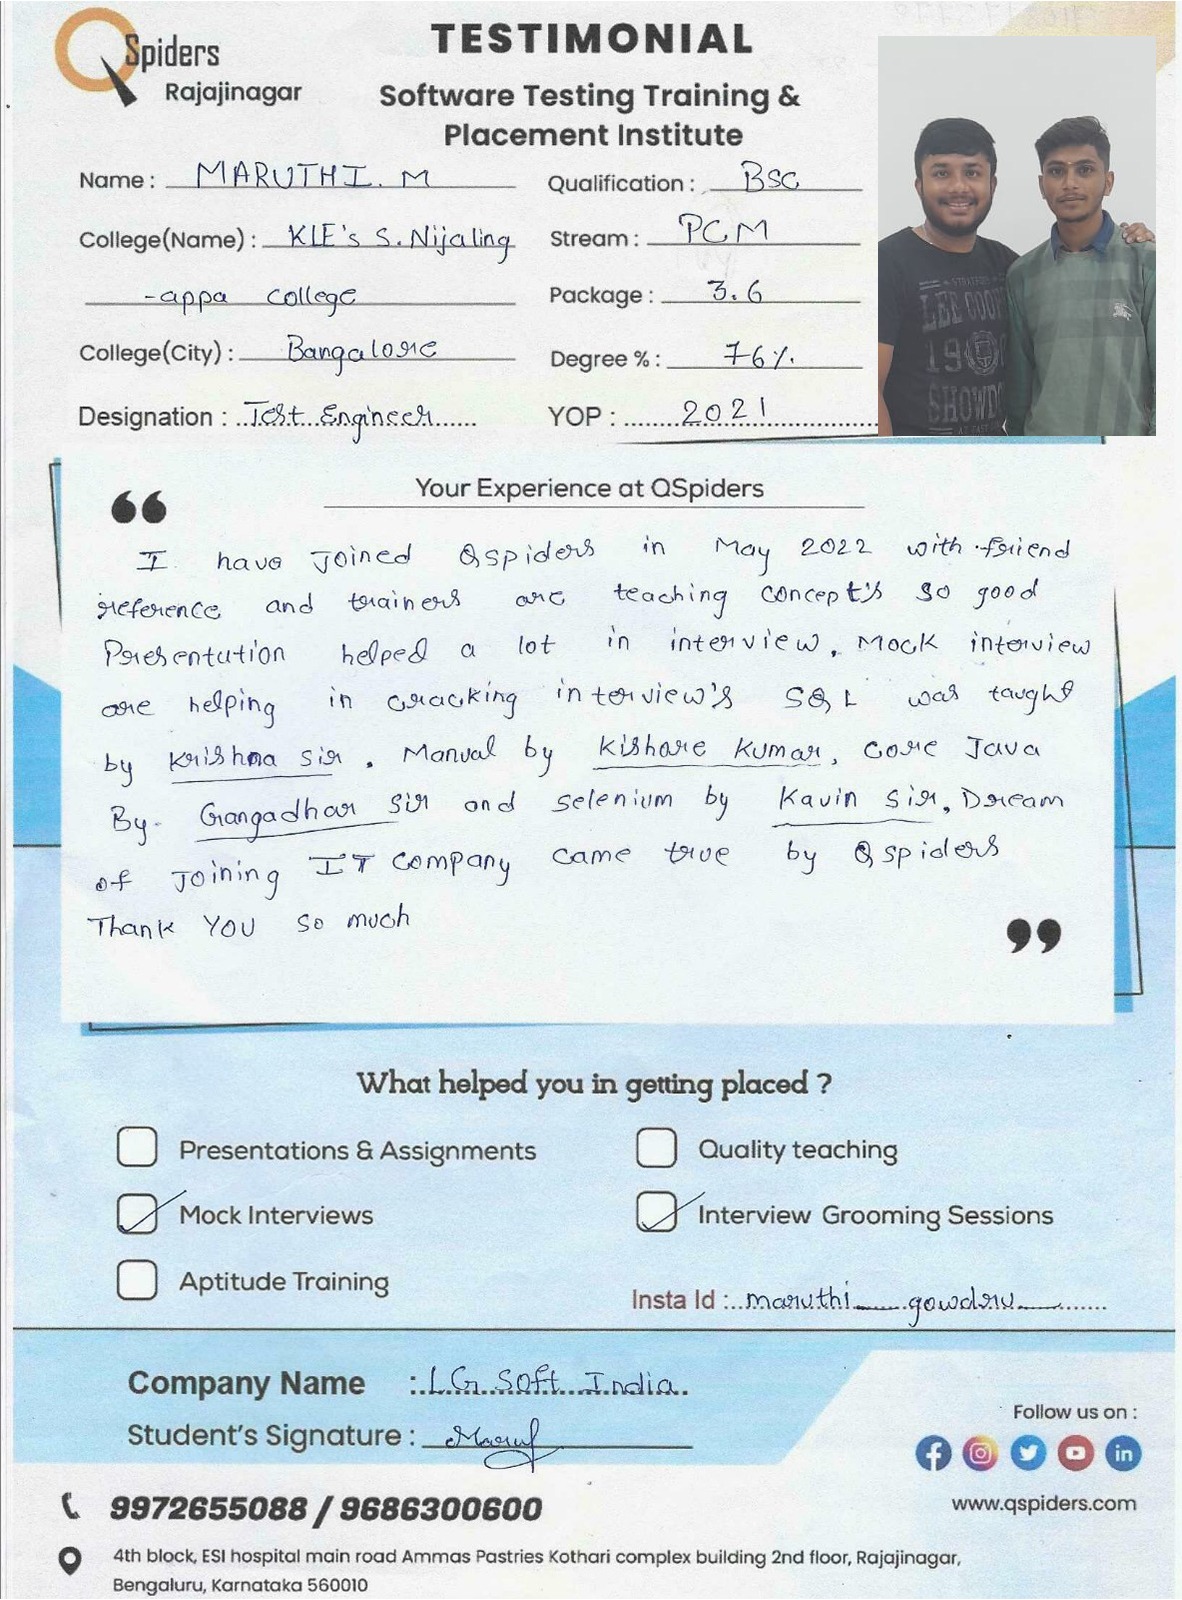 QSpiders
Rajajinagar
TESTIMONIAL
Software Testing Training &
Placement Institute
Name : MARUTHI. M
Qualification : BSC
College(Name) : KLE's S. Nijaling
Stream : PCM
-appa college
Package : 3.6
College(City) : Bangalore
Degree % : 76%
Designation : Test Engineer
YOP : 2021
LEE COOP
19
SHOWD
Your Experience at QSpiders
“
I have Joined Qspiders in May 2022 with friend
reference and trainers are teaching concept's so good
Presentution helped a lot in interview, Mock interview
are helping in cracking interview's SQL was taught
by Krishna sir, Manual by Kishore Kumar, core Java
By Gangadhar sir and selenium by Kavin sir, Dream
of Joining IT company came true by Qspiders
Thank YOU so much
”
What helped you in getting placed ?
Presentations & Assignments
Quality teaching
Mock Interviews
Interview Grooming Sessions
Aptitude Training
Insta Id : maruthi__gowdru__
Company Name : LG Soft India.
Student's Signature : Maruf
Follow us on :
9972655088 / 9686300600
www.qspiders.com
4th block, ESI hospital main road Ammas Pastries Kothari complex building 2nd floor, Rajajinagar,
Bengaluru, Karnataka 560010